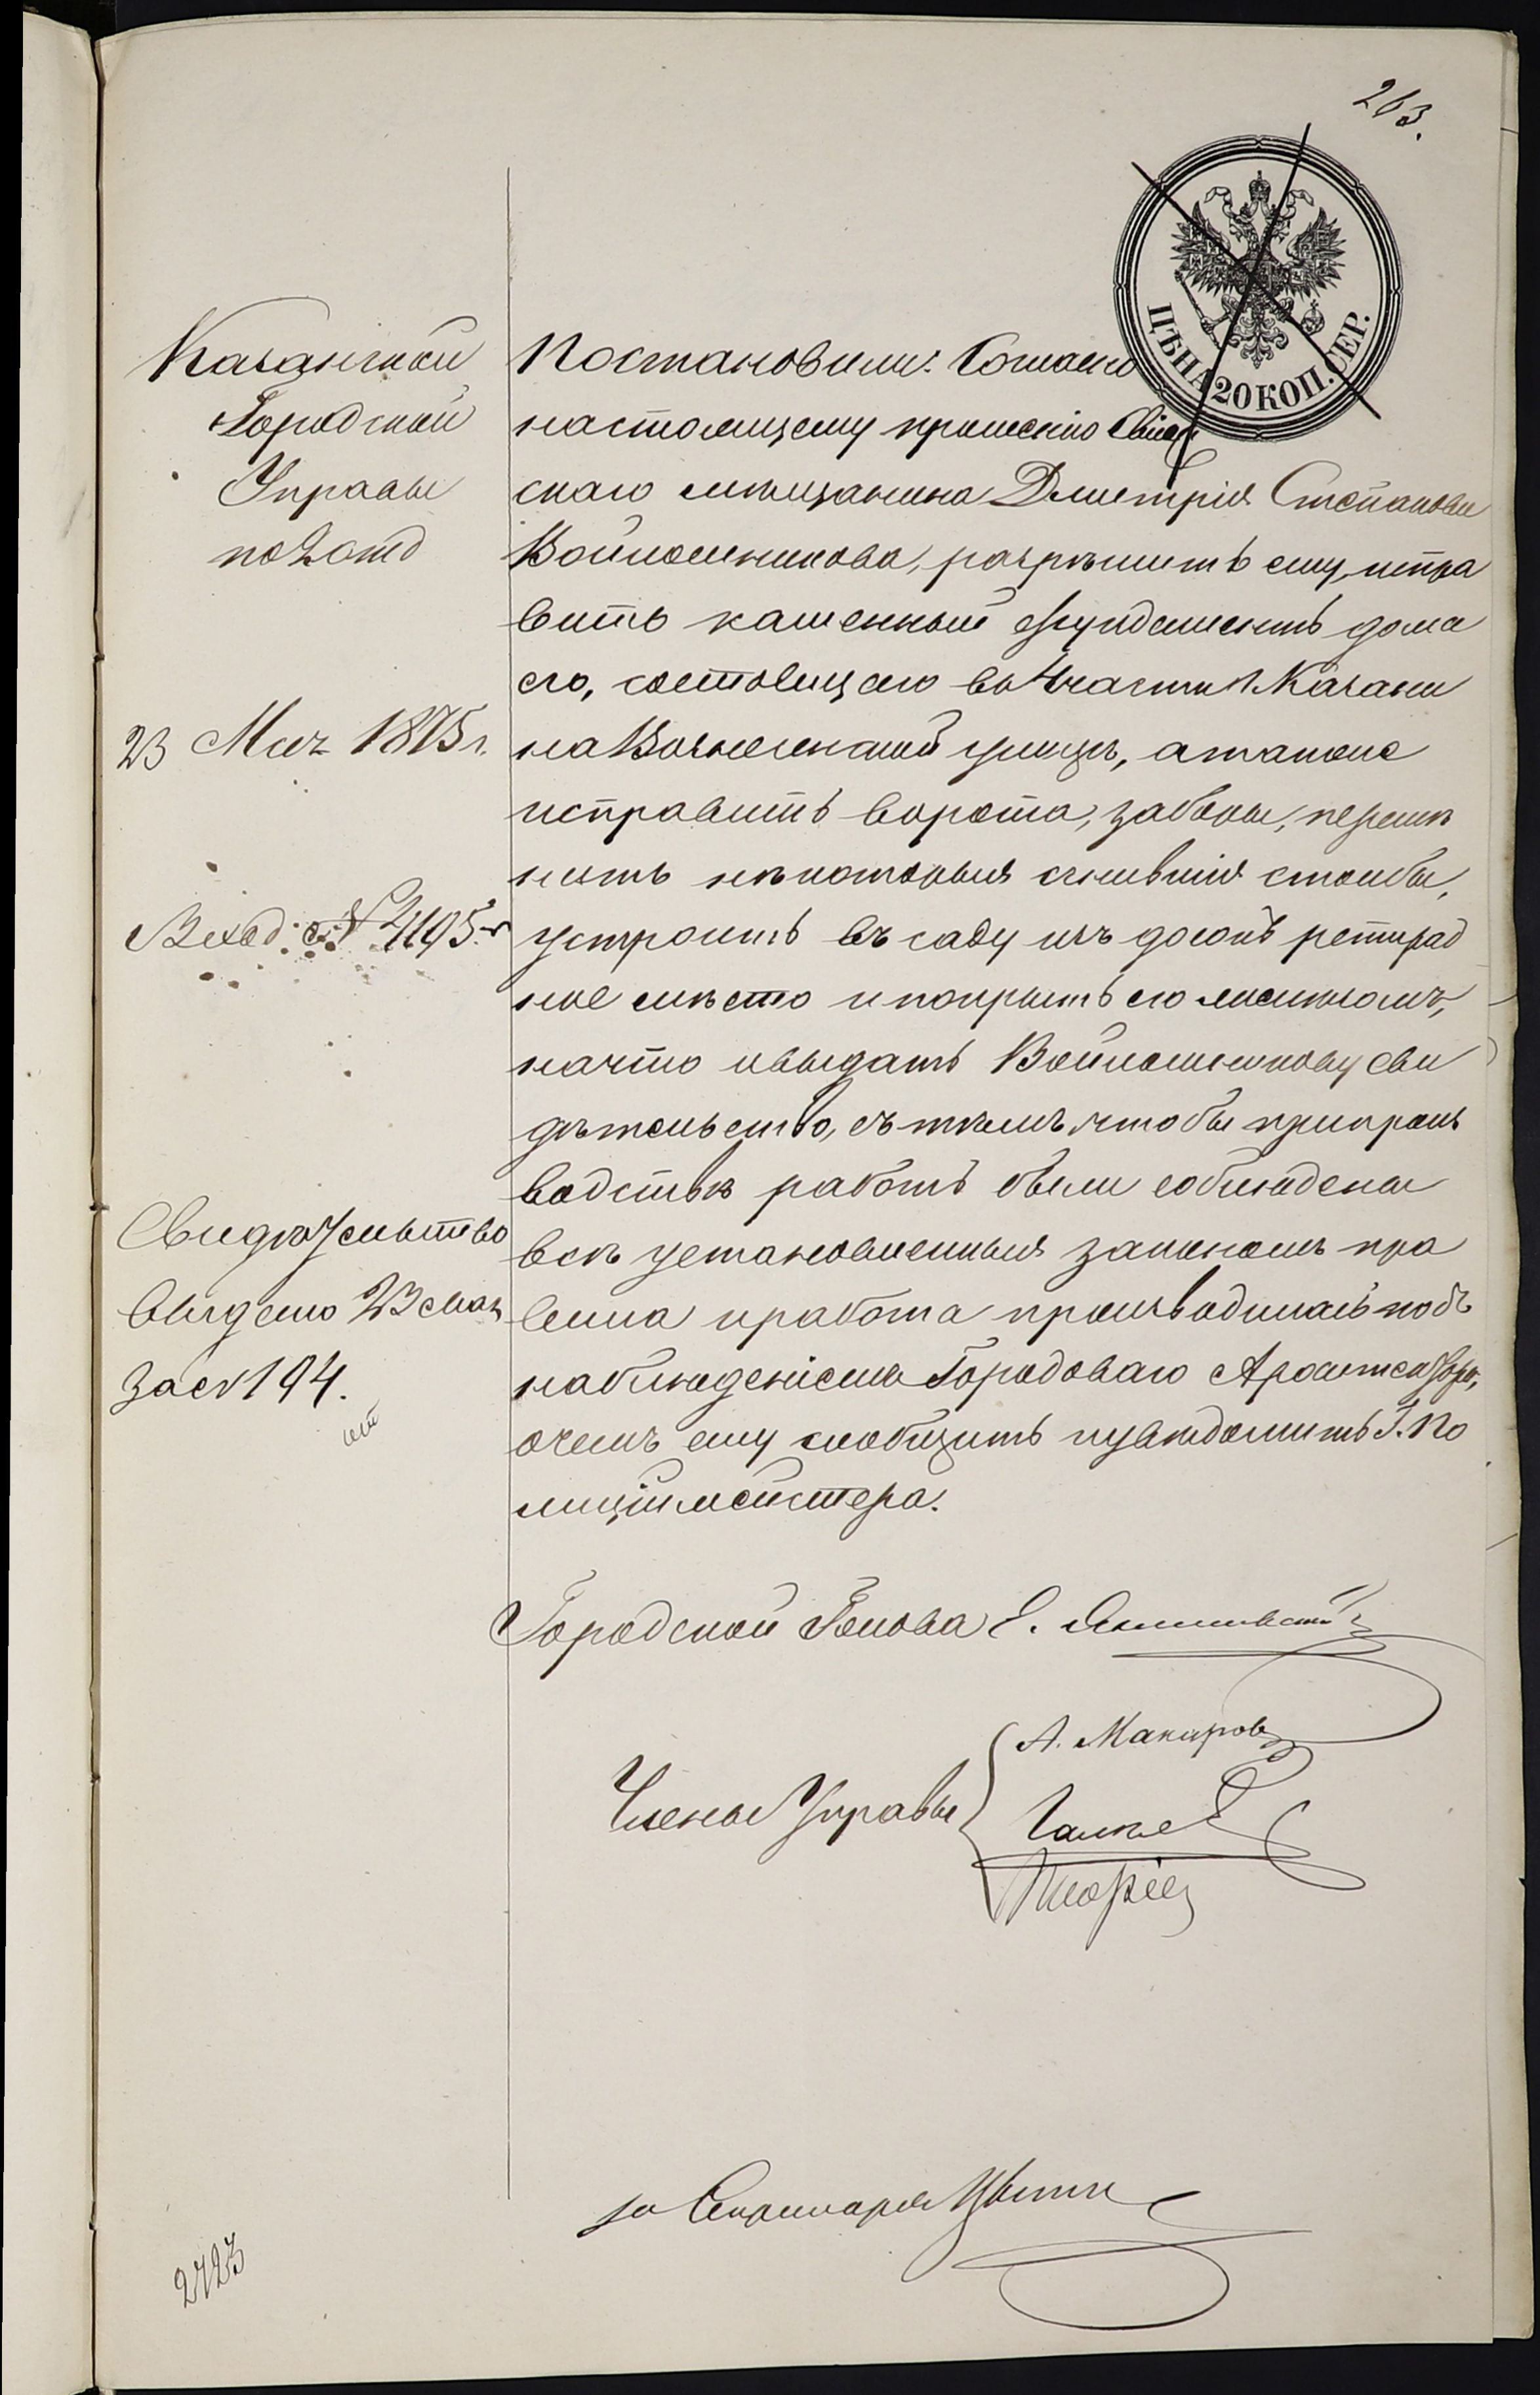 263.
ЦѢНА 20 КОП. СЕР.
Казанской
Городской
Управы
по 2 отд
23 Мая 1875 г.
Вход. № 4195
Свидѣтельство
выдано 23 мая
за № 194.
Постановили: Согласно
настоящему прошенію Свіяж
скаго мѣщанина Дмитрія Степанова
Войлошникова, разрѣшить ему испра
вить каменный фундаментъ дома
его, состоящаго въ 4 части г. Казани
на Вознесенской улицѣ, а также
исправить ворота, заборы, перемѣ
нить нѣкоторыя сгнившія столбы,
устроить въ саду изъ досокъ ретирад
ное мѣсто и покрыть его желѣзомъ,
на что и выдать Войлошникову сви
дѣтельство, съ тѣмъ чтобы при произ
водствѣ работъ были соблюдены
всѣ установленныя закономъ пра
вила и работа производилась подъ
наблюденіемъ Городоваго Архитектора,
о чемъ ему сообщить и увѣдомить Г. По
лиціймейстера.
Городской Голова Е. Янишевскій
Члены Управы
А. Макаров
Галкин
за Секретаря
2723